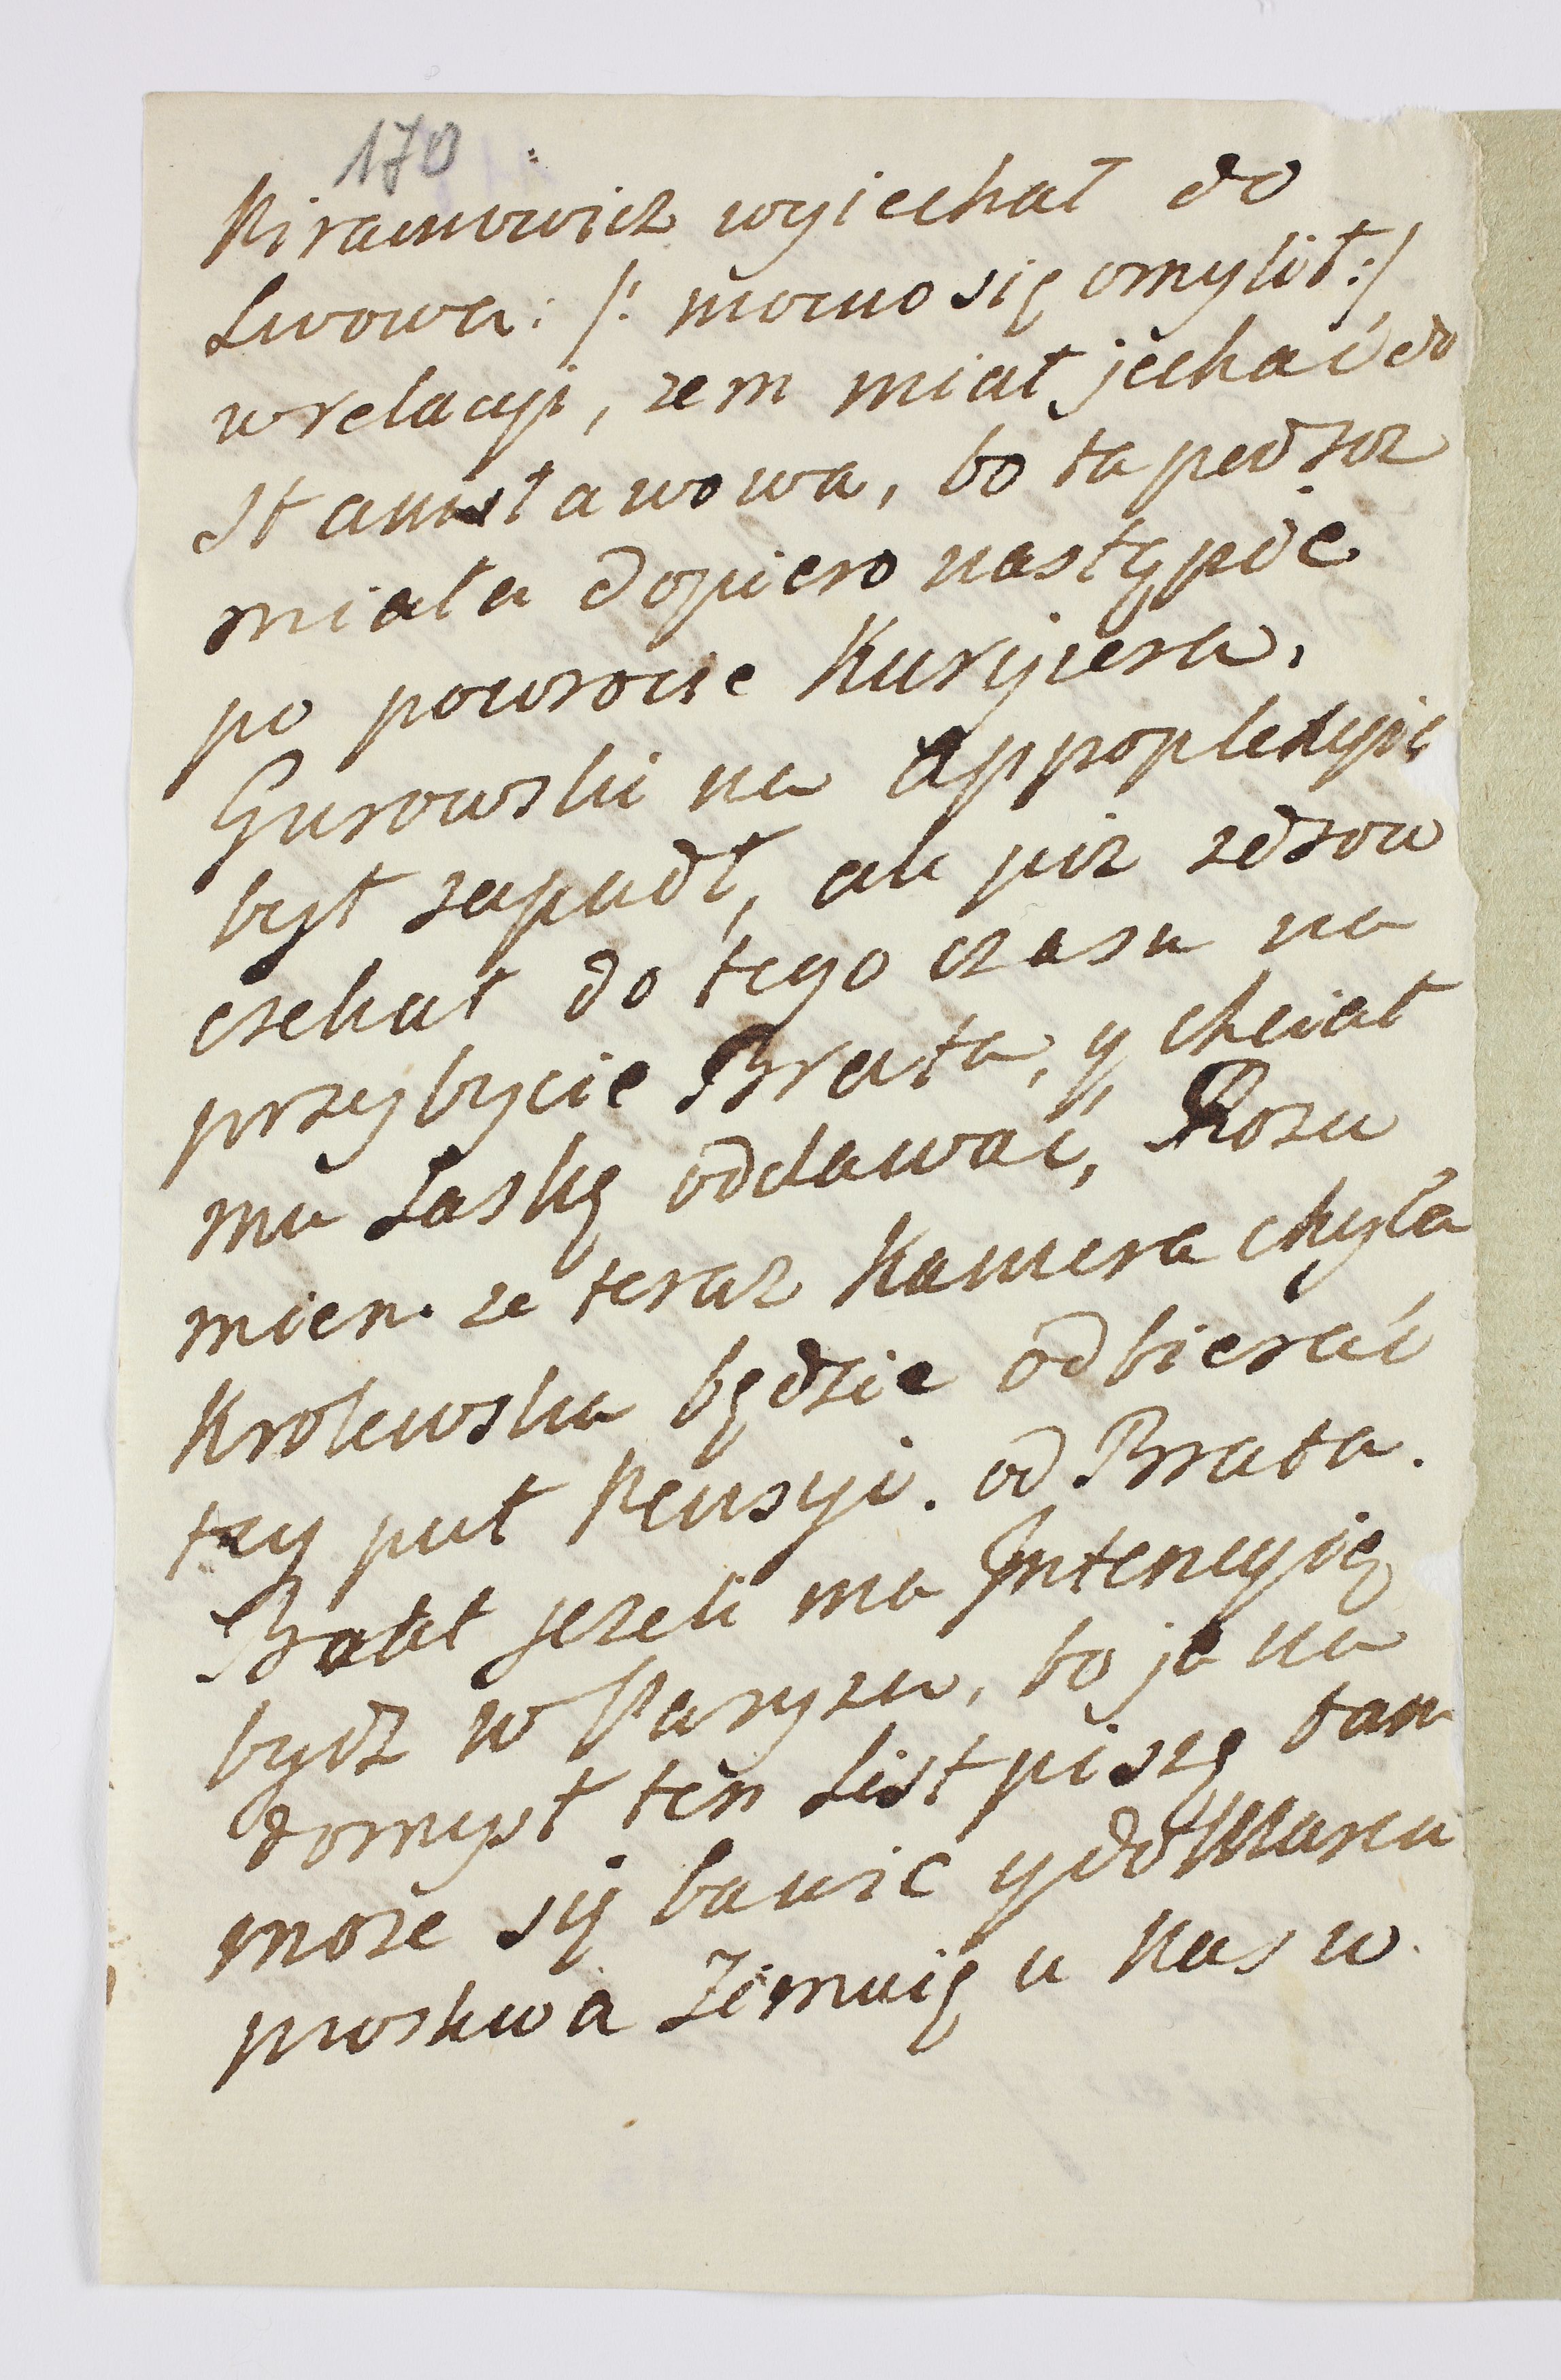 170
Kiranowicz wyiechał do
Lwowa: /: mocno się omylił :/
w relacyi, zem miał jechać do
Stanisławowa, bo ta podroz
miała dopiero nastąpić
po powrocie Kuryiera.
Gurowski na Appoplexyię
był zapadł, ale juz zdrow
czekał do tego czasu na
przybycie Brata, y chciał
mu Laskę oddawać, Rozu
miem ze teraz Kamera chyla
Krolewska będzie odbierać
trzy puł Pensyi. od Brata.
Brat jezeli ma Intencyię
bydz w Paryzu, bo ja na
domysł ten List piszę tam
może się bawić y do Marca
proskwa Zimuię u Nas w